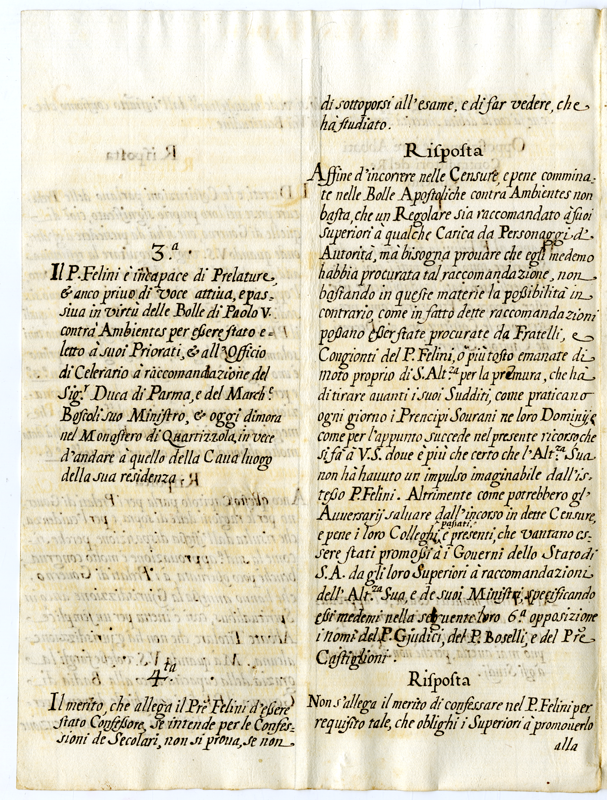 3.ª
Il P. Felini è incapace di Prelature,
& anco priuo di voce attiua, e pas-
siua in virtù delle Bolle di Paolo V.
contrà Ambientes per eßere stato e-
letto à suoi Priorati, & all'Officio
di Celerario à raccomandazione del
Sig.r Duca di Parma, e del March.e
Boscoli suo Ministro, & oggi dimora
nel Monastero di Quartizzola, in vece
d'andare à quello della Caua luogo
della sua residenza.
4.ta
Il merito, che allega il Prē Felini d'eßere
stato Confeßore, se intende per le Confes-
sioni de Secolari, non si proua, se non
di sottoporsi all'esame, e di far vedere, che
hà studiato.
Risposta
Affine d'incorrere nelle Censure, e pene commina-
te nelle Bolle Apostoliche contra Ambientes non
basta, che un Regolare sia raccomandato à suoi
Superiori à qualche Carica da Personaggi d'
Autorità, mà bisogna prouare che egli medemo
habbia procurata tal raccomandazione, non
bastando in queste materie la poßibilità in
contrario, come in fatto dette raccomandazioni
poßano eßer state procurate da Fratelli, e
Congionti del P. Felini, ò più tosto emanate di
moto proprio di S. Alt.za per la premura, che hà
di tirare auanti i suoi Sudditi, come praticano
ogni giorno i Prencipi Sourani ne loro Dominij, e
come per l'appunto succede nel presente ricorso che
si fà à V.S. doue è più che certo che l'Alt.za Sua
non hà hauuto un impulso imaginabile dall'is-
teßo P. Felini. Altrimente come potrebbero gl'
Auuersarij saluare dall'incorso in dette Censure,
e pene i loro Colleghi paßati, e presenti, che vantano es-
sere stati promoßi à i Gouerni dello Stato di
S.A. da gli loro Superiori à raccomandazioni
dell'Alt.za Sua, e de suoi Ministri, specificando
eßi medemi nella seguente loro 6.ª opposizione
i nomi del P. Giudici, del P. Boselli, e del Prē
Castiglioni.
Risposta
Non s'allega il merito di confessare nel P. Felini per
requisito tale, che oblighi i Superiori à promouerlo
alla